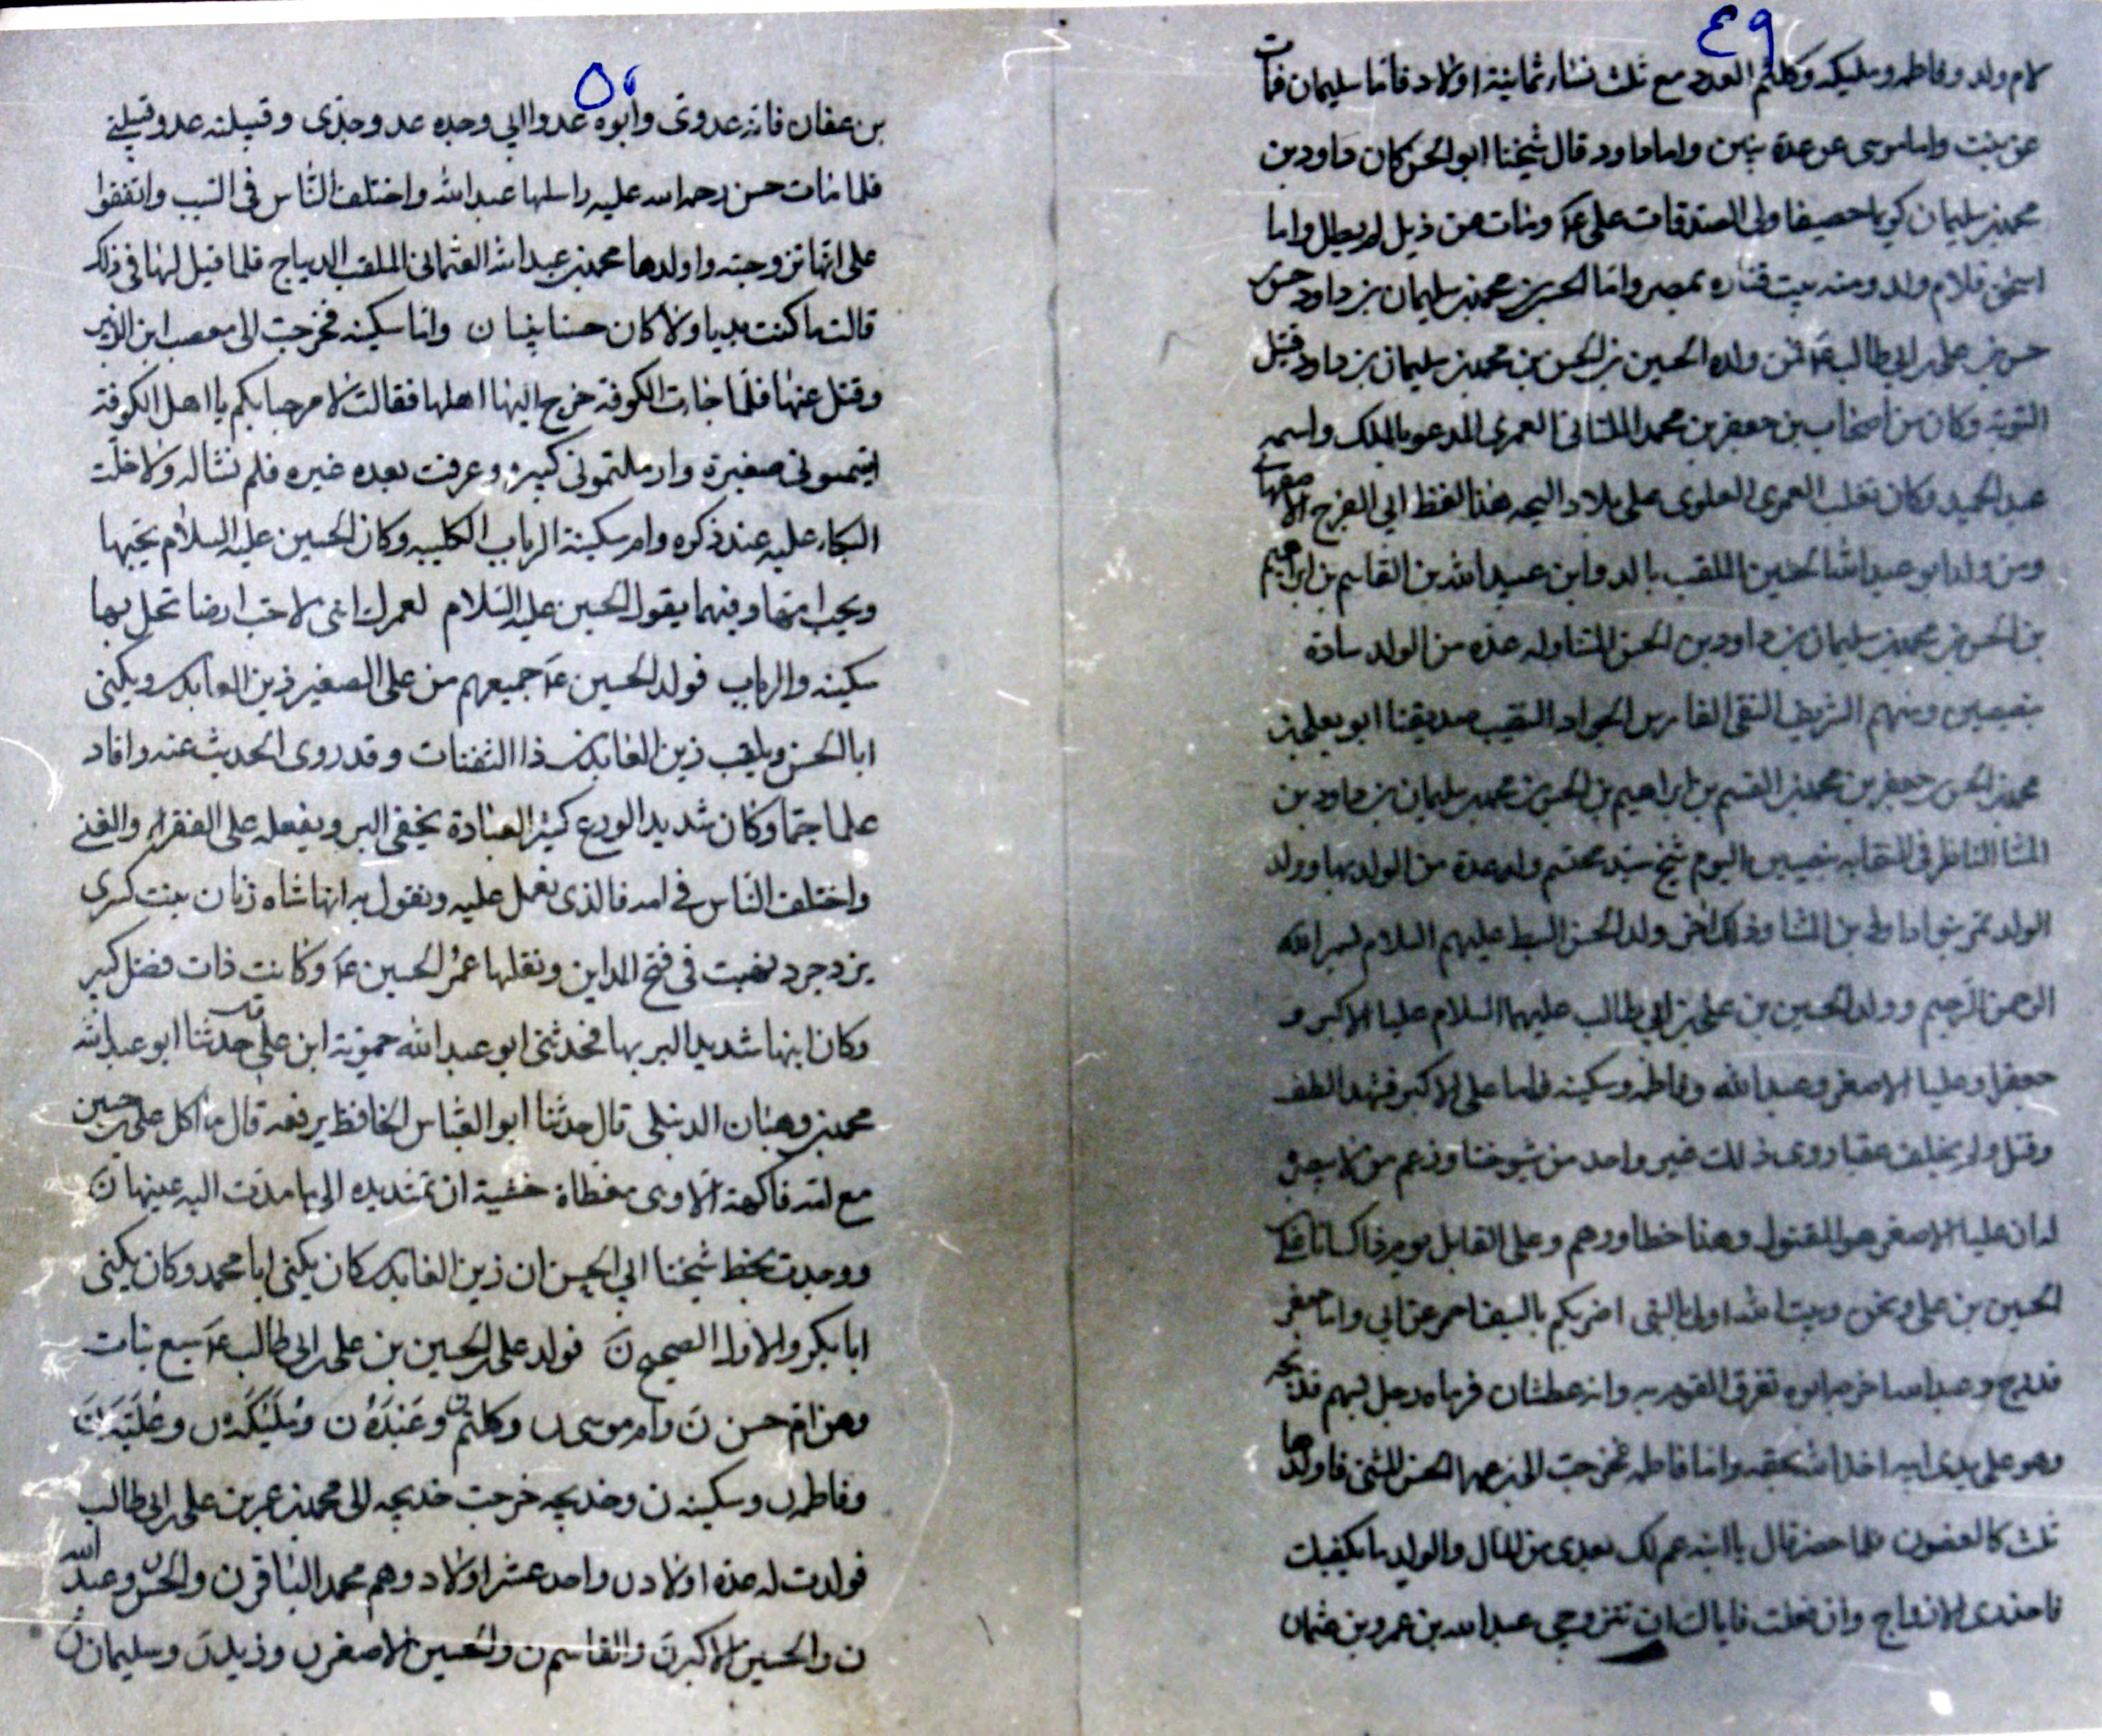 ٤٩
لام ولد وفاطمه ومليكه وكلثم العدد مع ثلث نساء ثمانية اولاد فاما سليمان فمات
عن بنت واما موسى عن عدة بنين واما داود قال شيخنا ابو الحسن كان داود بن
محمد بن سليمان كريما حصيفا ولى الصدقات على ومات عن ذيل لم يطل واما
اسحق فلام ولد ومنه بيت قتاره بمصر واما الحسن بن محمد بن سليمان بن داود بن حسن
حسن بن على بن ابى طالب عم فمن ولده الحسين بن الحسن بن محمد بن سليمان بن داود قتيل
وكان من اصحاب بن جعفر بن محمد الملتانى العمرى المدعو بالملك واسمه
عبد الحميد وكان تغلب العمرى العلوى على بلاد هذا لفظ ابي الفرج الاصفهانى
ومن ولد ابو عبد الله الحسين الملقب بالد وابن عبيد الله بن القاسم بن ابراهيم
بن الحسن بن محمد بن سليمان بن داود بن الحسن المثنا وله عدة من الولد سادة
بنصيبين ومنهم الشريف التقى الفارس الجواد النقيب صديقنا ابو يعلى بن
محمد بن الحسن بن جعفر بن محمد بن القسم بن ابراهيم بن الحسن بن محمد بن سليمان بن داود بن
المثنا الناظر فى النقابه بنصيبين اليوم شيخ سيد محتشم وله عدة من الولد بها وولد
الولد بن المثنا وذلك اخر ولد الحسن السبط عليهم السلام بسم الله
الرحمن الرحيم وولد الحسين بن على بن ابى طالب عليهما السلام عليا الاكبر و
جعفرا وعليا الاصغر وعبد الله وفاطمه وسكينه فاما على الاكبر فشهد الطف
وقتل ولم يخلف عقبا روى ذلك غير واحد من شيوخنا وزعم من لا بصيرة
له ان عليا الاصغر هو المقتول وهذا خطا ووهم وعلى القايل يوم انا على
الحسين بن على ونحن وبيت الله اولى بالنبى اضربكم بالسيف احمى عن ابى واما جعفر
فدرج وعبد الله اخرجه ابوه تفرق القوم به وانه عطشان فرماه رجل بسهم فذبحه
وهو على يدى ابيه اخذ الله بحقه واما فاطمه فخرجت الى بن عمها الحسن المثنى فاولدها
ثلث كالغصون فلما حضر قال يا ابنة عم لك بعدى من المال والولد ما يكفيك
فاحذرى الازواج وان فعلت فاياك ان تتزوجى عبد الله بن عمرو بن عثمان
٥٠
بن عفان فانه عدوى وابوه عدوا ابي وجده عدو جدى وقبيلته عدو قبيلتي
فلما مات حسن رحمه الله عليه راسلها عبد الله واختلف الناس فى السبب واتفقوا
على انها تزوجته واولدها محمد بن عبد الله العثمانى الملقب الديباج فلما قيل لها فى ذلك
قالت ما كنت بديا ولا كان حسنا نبيا ن واما سكينه فخرجت الى مصعب ابن الزبير
وقتل عنها فلما جاءت الكوفة خرج اليها اهلها فقالت لا مرحبا بكم يا اهل الكوفة
ايتمتمونى صغيرة وارملتمونى كبيرة وعرفت بعده غيره فلم تساله ولا خلت
البكاء عليه عند ذكره وام سكينة الرباب الكلبيه وكان الحسين عليه السلام يحبها
ويحب ابنتها وفيهما يقول الحسين عليه السلام لعمرك اننى لاحب ارضا تحل بها
سكينه والرباب فولد الحسين عم جميعهم من على الصغير زين العابدين ويكنى
ابا الحسن ويلقب زين العابدين ذا الثفنات وقد روى الحديث عنه وافاد
علما جما وكان شديد الورع كثير العبادة يخفى البر ويفعله على الفقراء والغنى
واختلف الناس فى امه فالذى نعمل عليه ونقول به انها شاه زنان بنت كسرى
يزدجرد نهبت فى فتح المداين ونقلها عمر الحسين عم وكانت ذات فضل كبير
وكان ابنها شديد البر بها فحدثنى ابو عبد الله حموية ابن على قال حدثنا ابو عبد الله
محمد بن وهبان الدنبلى قال حدثنا ابو العباس الحافظ يرفعه قال ما اكل على بن حسين
مع امه فاكهة الا وهى مغطاة خشية ان تمتد يده الى ما مدت اليه عينها ن
ووجدت بخط شيخنا ابي الحسن ان زين العابدين كان يكنى ابا محمد وكان يكنى
ابا بكر والاول الصحيح ن فولد على بن الحسين بن على بن ابى طالب عم سبع بنات
وهن ام حسن ن وام موسى ن وكلثم ن وعبدة ن ومليكة ن وعلية ن
وفاطمه ن وسكينه ن وخديجه خرجت خديجه الى محمد بن عمر بن على بن ابى طالب
فولدت له عدة اولاد ن واحد عشر اولاد وهم محمد الباقر ن والحسن ن وعبد الله
ن والحسين الاكبر ن والقاسم ن والحسين الاصغر ن وزيد ن وسليمان ن